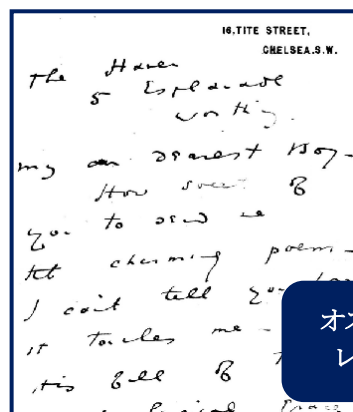 16, TITE STREET,
CHELSEA. S.W.
The Haven
5 Esplanade
Worthing.
My own dearest Boy—
How sweet of
you to send me
that charming poem—
I can't tell you how
it touches me—
it is full of
オス
レ